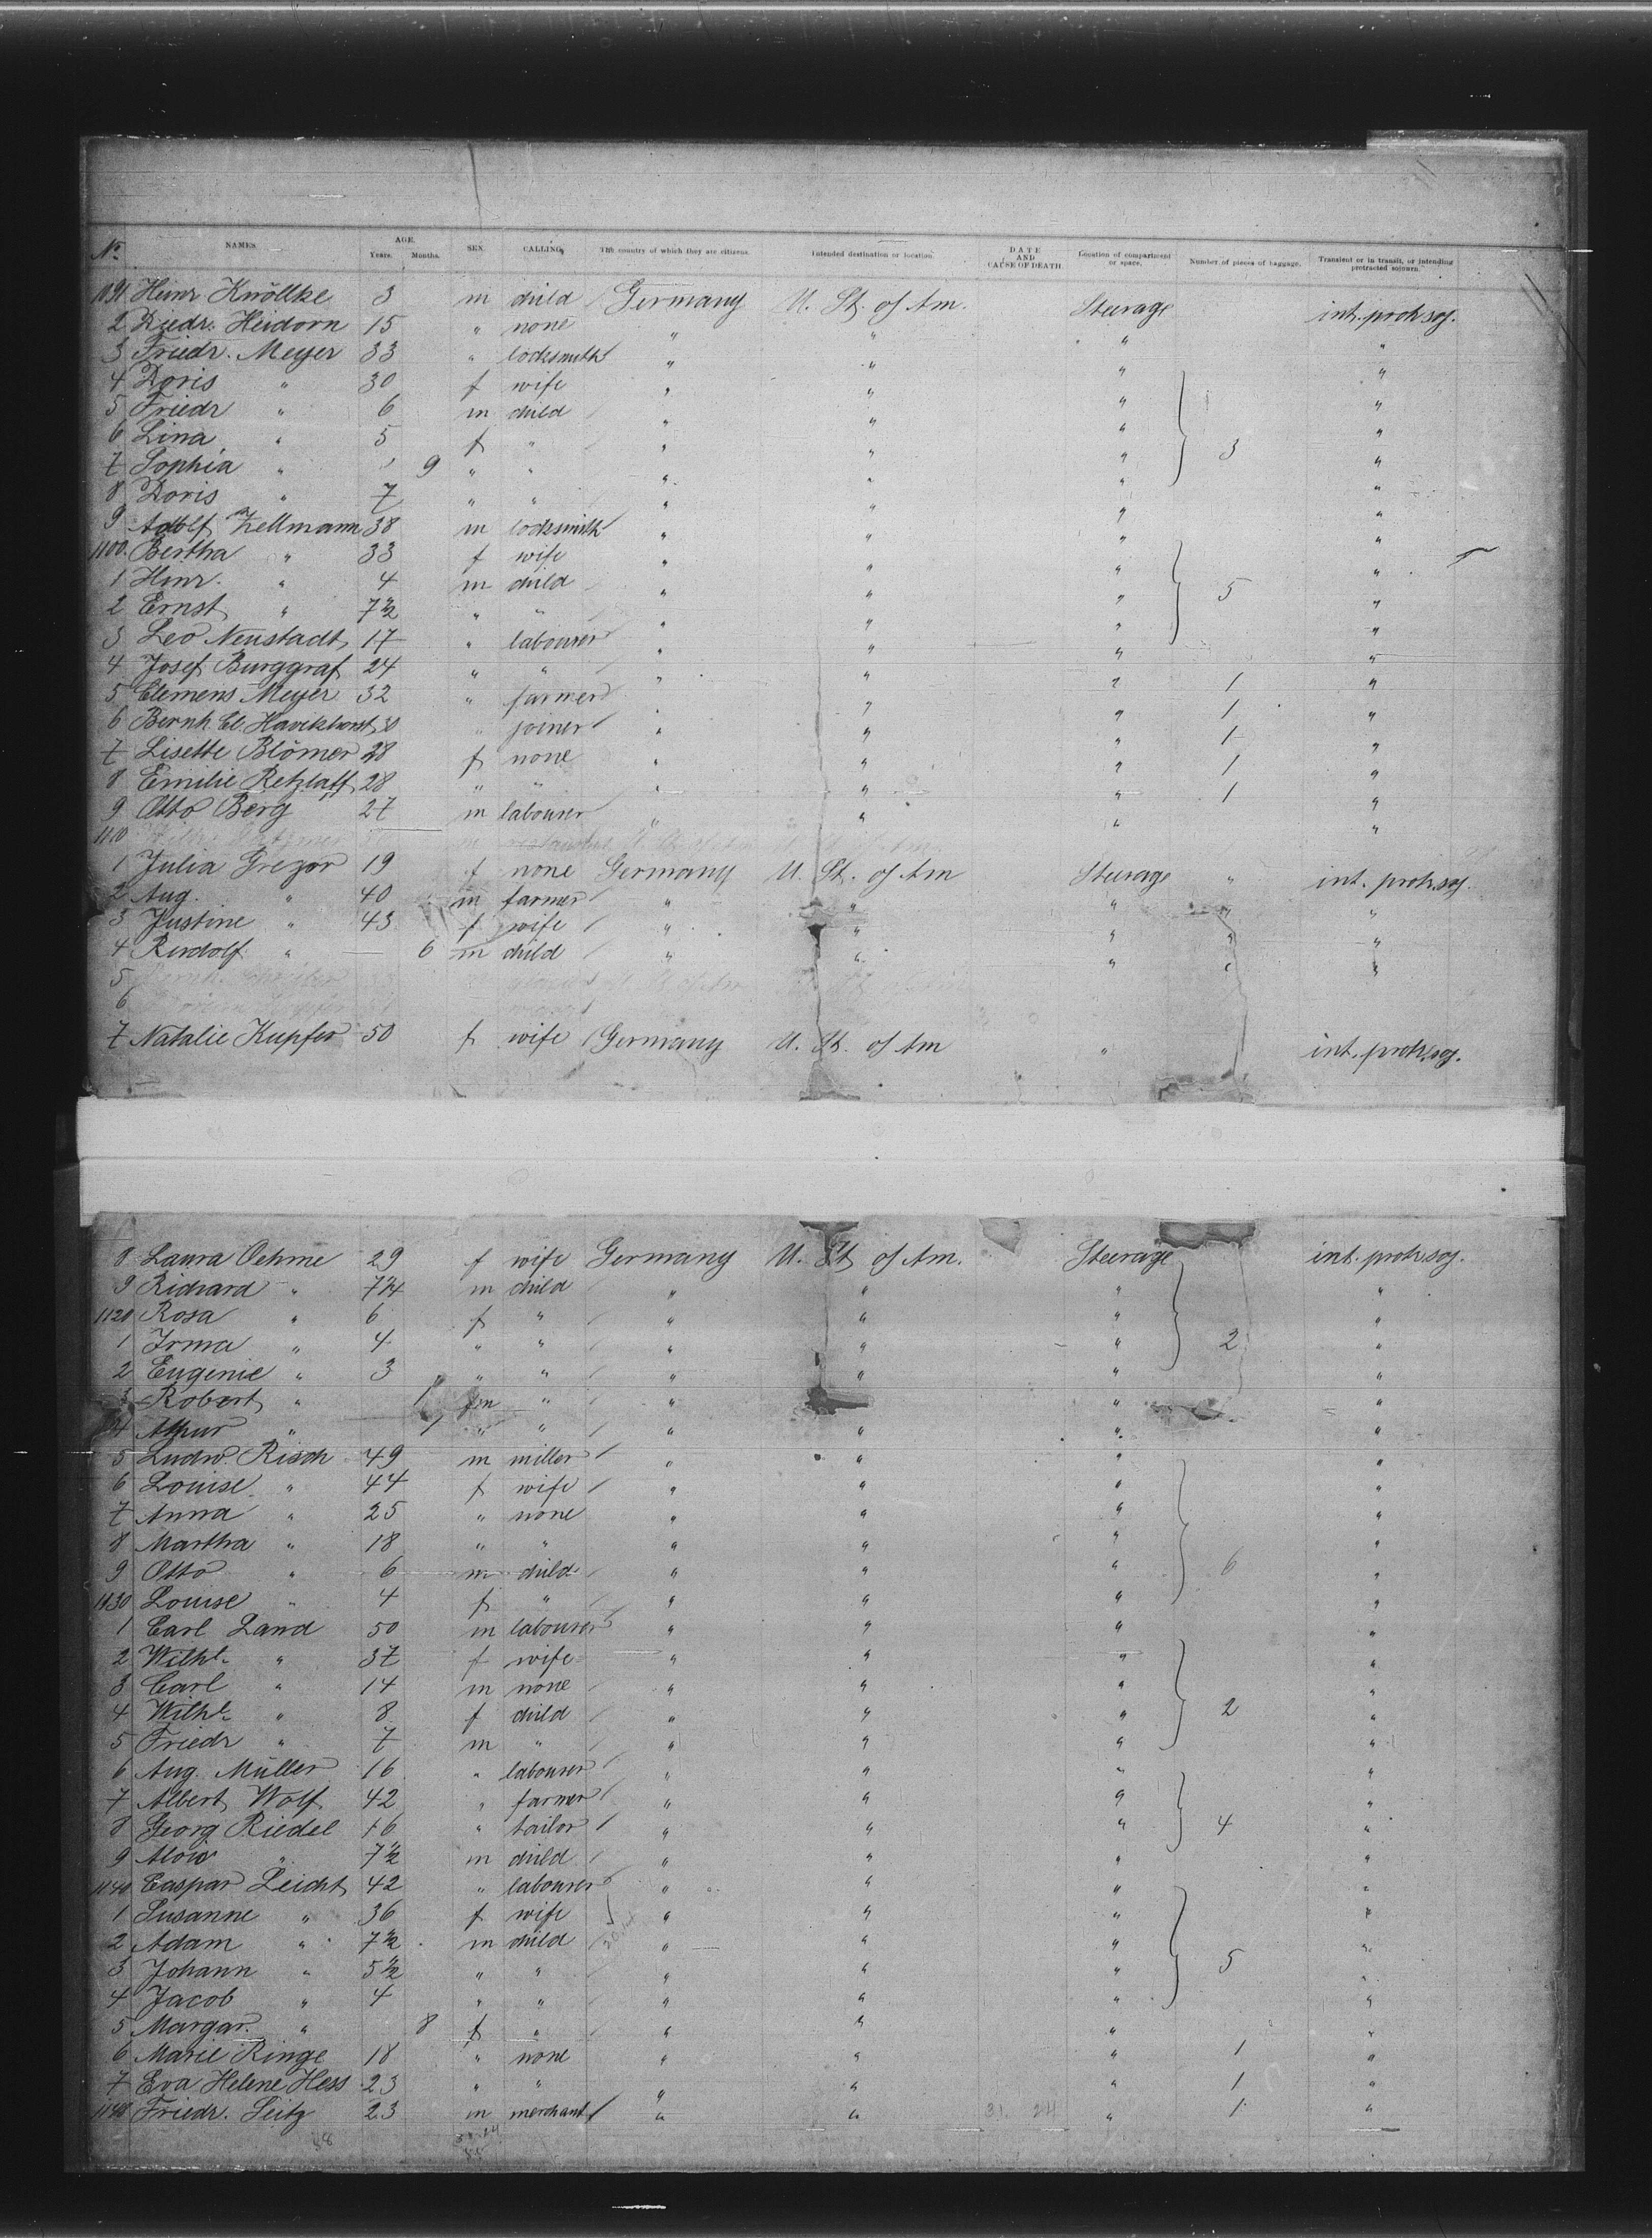 No. NAMES. AGE. Years. Months. SEX. CALLING. The country of which they are citizens. Intended destination or location. DATE AND CAUSE OF DEATH. Location of compartment or space. Number of pieces of baggage. Transient or in transit, or intending protracted sojourn.
1091 Heinr Knöllke 3 m child Germany U. St. of Am. Steerage int. protr. soj.
2 Diedr. Heidorn 15 " none " " " "
3 Friedr. Meyer 33 " locksmith " " " "
4 Doris " 30 f wife " " " "
5 Friedr " 6 m child " " " "
6 Lina " 5 f " " " " 3 "
7 Sophia " 9 " " " " " "
8 Doris " 7 " " " " " "
9 Adolf Zellmann 38 m locksmith " " " "
1100. Bertha " 33 f wife " " " "
1 Hinr. " 4 m child " " " 5 "
2 Ernst " 7½ " " " " " "
3 Leo Neustadt 17 " labourer " " " "
4 Josef Burggraf 24 " " " " " 1 "
5 Clemens Meyer 32 " farmer " " " 1 "
6 Bernh. Cl. Havikhorst 30 " joiner " " " 1 "
7 Lisette Blömer 28 f none " " " 1 "
8 Emilie Retzlaff 28 " " " " " 1 "
9 Otto Berg 27 m labourer " " " "
1110
1 Julia Gregor 19 f none Germany U. St. of Am Steerage " int. protr. soj.
2 Aug. " 40 m farmer " " " " "
3 Justine " 43 f wife " " " " "
4 Rudolf " — 6 m child " " " " "
5
6
7 Natalie Kupfer 50 f wife Germany U. St. of Am " int. protr. soj.
8 Laura Oehme 29 f wife Germany U. St. of Am. Steerage int. protr. soj.
9 Richard " 7¾ m child " " " "
1120 Rosa " 6 f " " " " "
1 Irma " 4 " " " " " 2 "
2 Eugenie " 3 " " " " " "
3 Robert " m " " " " "
4 Athur " 1 " " " " " "
5 Ludw. Risch 49 m miller " " " "
6 Louise " 44 f wife " " " "
7 Anna " 25 " none " " " "
8 Martha " 18 " " " " " "
9 Otto " 6 m child " " " 6 "
1130 Louise " 4 f " " " " "
1 Carl Land 50 m labourer " " " "
2 Wilhl. " 37 f wife " " " "
3 Carl " 14 m none " " " "
4 Wilhl. " 8 f child " " " 2 "
5 Friedr " 7 m " " " " "
6 Aug. Müller 16 " labourer " " " "
7 Albert Wolf 42 " farmer " " " "
8 Georg Riedel 16 " tailor " " " 4 "
9 Alois " 7½ m child " " " "
1140 Caspar Leicht 42 " labourer " " " "
1 Susanne " 36 f wife " " " "
2 Adam " 7½ m child " " " "
3 Johann " 5½ " " " " " 5 "
4 Jacob " 4 " " " " " "
5 Margar. " 8 f " " " " "
6 Marie Ringe 18 " none " " " 1 "
7 Eva Helene Hess 23 " " " " " 1 "
1148 Friedr. Seitz 23 m merchant " " 31. 24 " 1 "